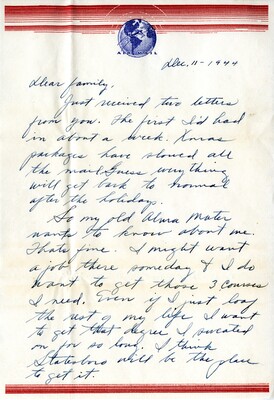 Dec. 11 - 1944
Dear Family,
Just received two letters
from you. The first I'd had
in about a week. Xmas
packages have slowed all
the mail. Guess everything
will get back to normal
after the holidays.
So my old Alma Mater
wants to know about me.
Thats fine. I might want
a job there someday & I do
want to get those 3 courses
I need. Even if I just loaf
the rest of my life I want
to get that degree I sweated
on for so long. I think
Statesboro will be the place
to get it.